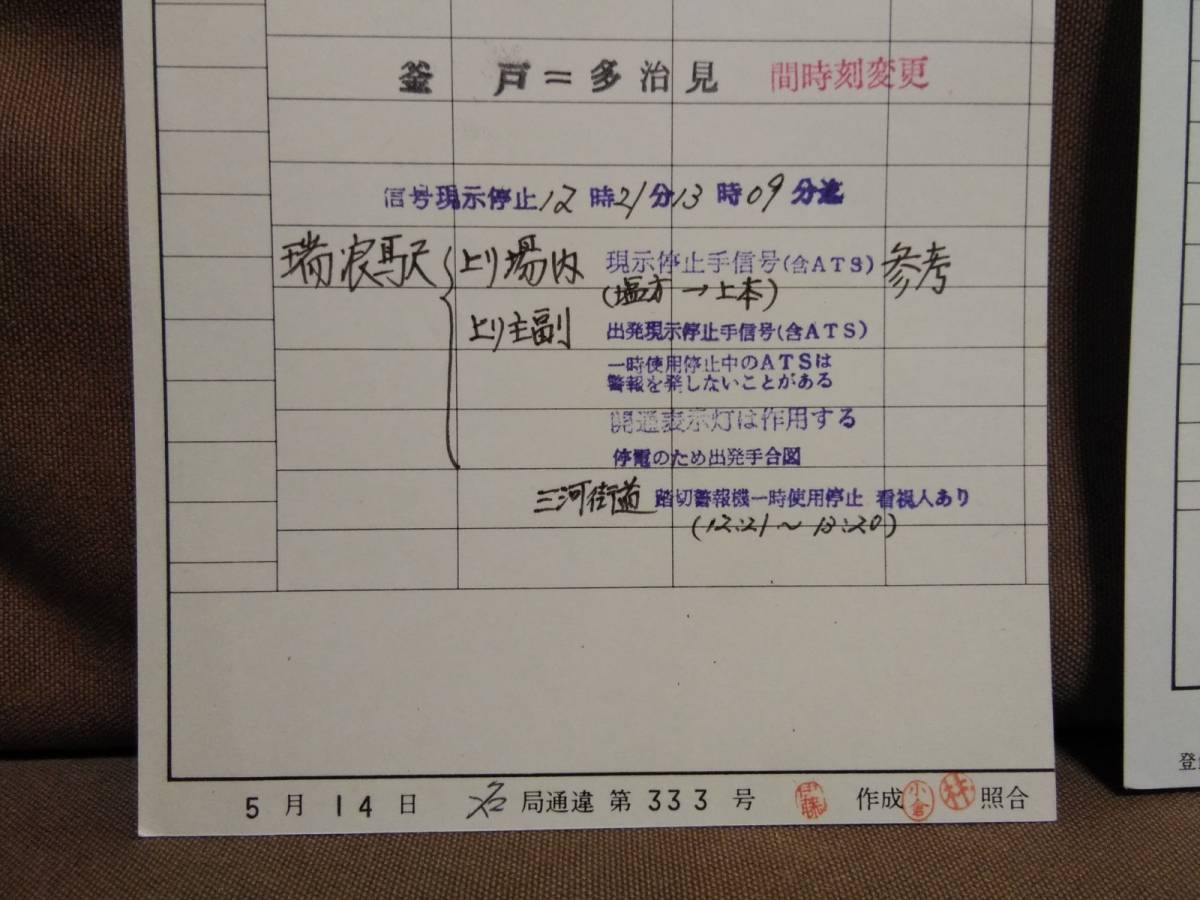 釜戸=多治見 間時刻変更
信号現示停止12時21分13時09分迄
瑞浪駅 上り場内 現示停止手信号(含ATS) 参考
(塩方→上本)
上り主副 出発現示停止手信号(含ATS)
一時使用停止中のATSは
警報を発しないことがある
開通表示灯は作用する
停電のため出発手合図
三河街道 踏切警報機一時使用停止 看視人あり
(12:21~13:20)
5月14日 名局通違 第333号 伊藤 作成 小倉 林 照合
登